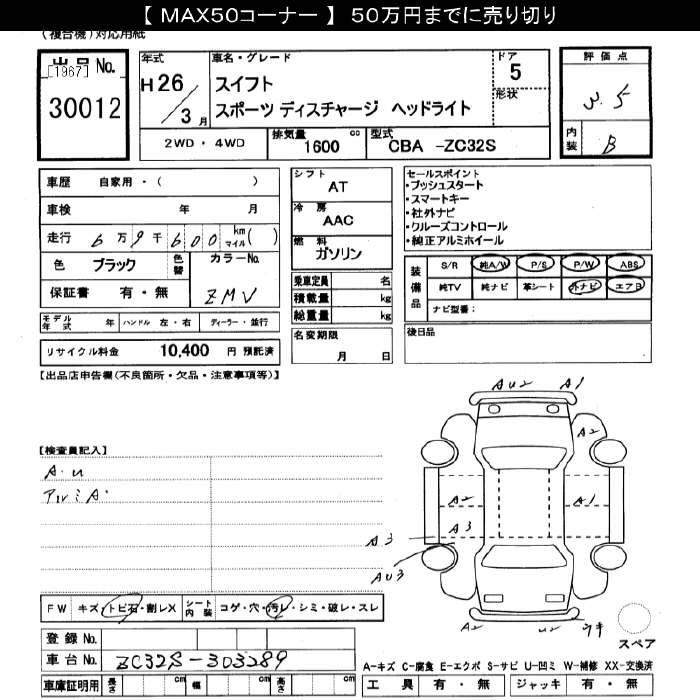 【 MAX50コーナー 】 50万円までに売り切り
(複合機)対応用紙
出品 No.
[1967]
30012
年式
H26/3月
車名・グレード
スイフト
スポーツ ディスチャージ ヘッドライト
ドア
5
形状
評価点
3.5
内装
B
2WD・4WD
排気量
1600 cc
型式
CBA -ZC32S
車歴 自家用・( )
車検 年 月
走行 6万9千600 km マイル( )
色 ブラック 色替 カラーNo.
保証書 有・無 ZMV
モデル年式 年 ハンドル 左・右 ディーラー・並行
リサイクル料金 10,400 円 預託済
シフト
AT
冷房
AAC
燃料
ガソリン
乗車定員 名
積載量 kg
総重量 kg
名変期限
月 日
セールスポイント
・プッシュスタート
・スマートキー
・社外ナビ
・クルーズコントロール
・純正アルミホイール
装備品
S/R 純A/W P/S P/W ABS
純TV 純ナビ 革シート 外ナビ エアB
ナビ型番:
後日品
【出品店申告欄(不良箇所・欠品・注意事項等)】
【検査員記入】
A・U
アルミA・
AU2 A1
A2
A2 A1
A3 A3
AU3
A2 U2 ワキ
スペア
FW キズ・トビ石・割レX シート内装 コゲ・穴・汚レ・シミ・破レ・スレ
登録 No.
車台 No. ZC32S-303289
車庫証明用 長さ cm 幅 cm 高さ cm
A-キズ C-腐食 E-エクボ S-サビ U-凹ミ W-補修 XX-交換済
工具 有・無 ジャッキ 有・無